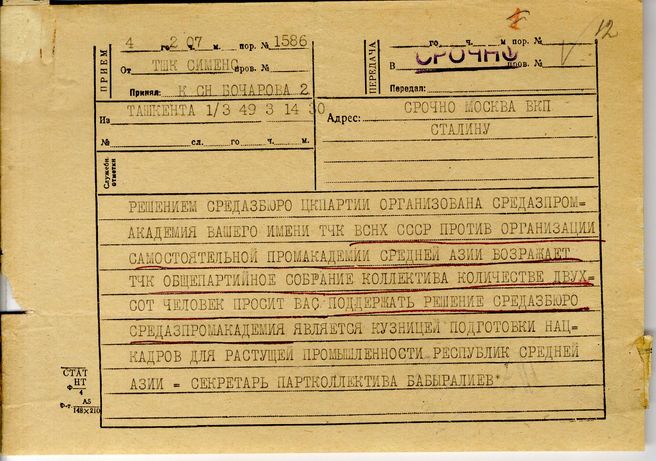 12
ПРИЕМ
4 го 2 ч. 07 м. пор. № 1586
От ТШК СИМЕНС пров. №
Принял: К СН БОЧАРОВА 2
ПЕРЕДАЧА
го ч. м. пор. №
В СРОЧНО пров. №
Передал:
Из ТАШКЕНТА 1/3 49 3 14 30
№ сл. го ч. м.
Адрес: СРОЧНО МОСКВА ВКП
СТАЛИНУ
Служебн. отметки
РЕШЕНИЕМ СРЕДАЗБЮРО ЦКПАРТИИ ОРГАНИЗОВАНА СРЕДАЗПРОМ=
АКАДЕМИЯ ВАШЕГО ИМЕНИ ТЧК ВСНХ СССР ПРОТИВ ОРГАНИЗАЦИИ
САМОСТОЯТЕЛЬНОЙ ПРОМАКАДЕМИИ СРЕДНЕЙ АЗИИ ВОЗРАЖАЕТ
ТЧК ОБЩЕПАРТИЙНОЕ СОБРАНИЕ КОЛЛЕКТИВА КОЛИЧЕСТВЕ ДВУХ=
СОТ ЧЕЛОВЕК ПРОСИТ ВАС ПОДДЕРЖАТЬ РЕШЕНИЕ СРЕДАЗБЮРО
СРЕДАЗПРОМАКАДЕМИЯ ЯВЛЯЕТСЯ КУЗНИЦЕЙ ПОДГОТОВКИ НАЦ=
КАДРОВ ДЛЯ РАСТУЩЕЙ ПРОМЫШЛЕННОСТИ РЕСПУБЛИК СРЕДНЕЙ
АЗИИ = СЕКРЕТАРЬ ПАРТКОЛЛЕКТИВА БАБЫРАЛИЕВ
СТАТ
НТ
Ф. 4
А5
Ф-т. 148×210